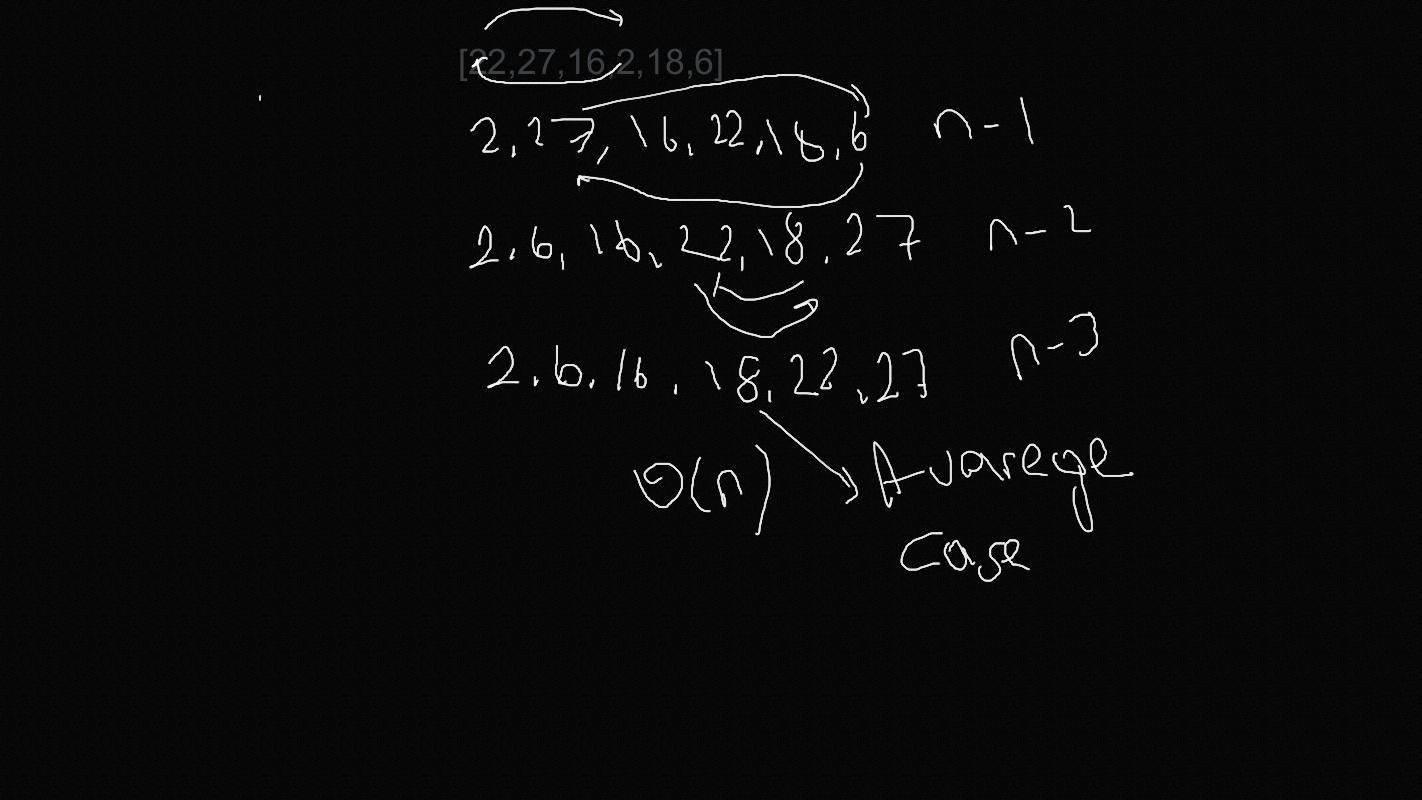 [22,27,16,2,18,6]
2,27,16,22,18,6 n-1
2,6,16,22,18,27 n-2
2,6,16,18,22,27 n-3
O(n) Avarege
Case